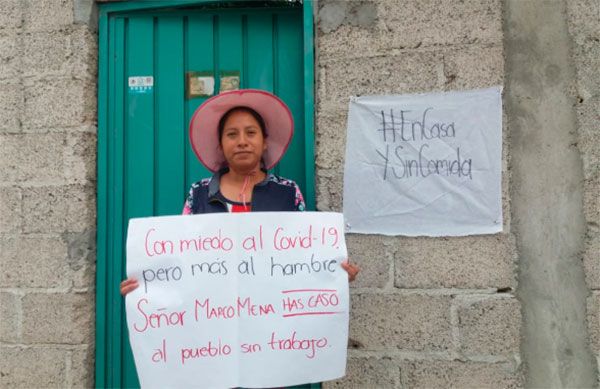 Con miedo al Covid-19,
pero más al hambre
Señor MARCO MENA HAS CASO
al pueblo sin trabajo.
#EnCasa
YSinComida